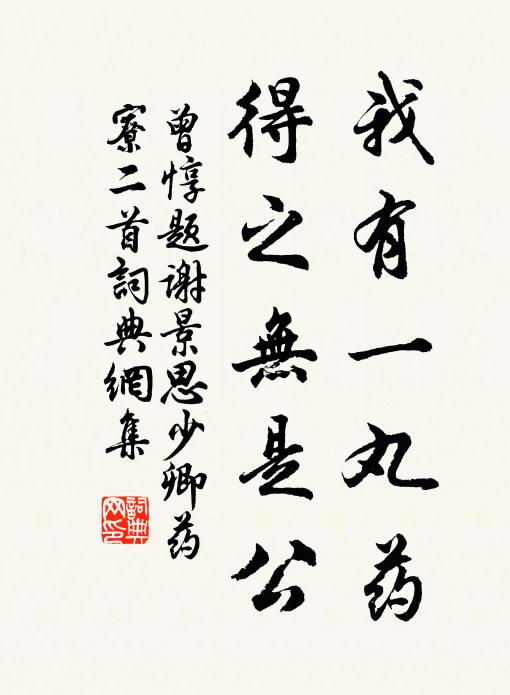 我有一丸药
得之無是公
曾惇题谢景思少卿药
寮二首詞典網集
詞典
网印